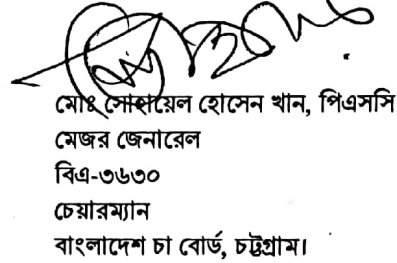 মোঃ সোহায়েল হোসেন খান, পিএসসি
মেজর জেনারেল
বিএ-৩৬৩০
চেয়ারম্যান
বাংলাদেশ চা বোর্ড, চট্টগ্রাম।